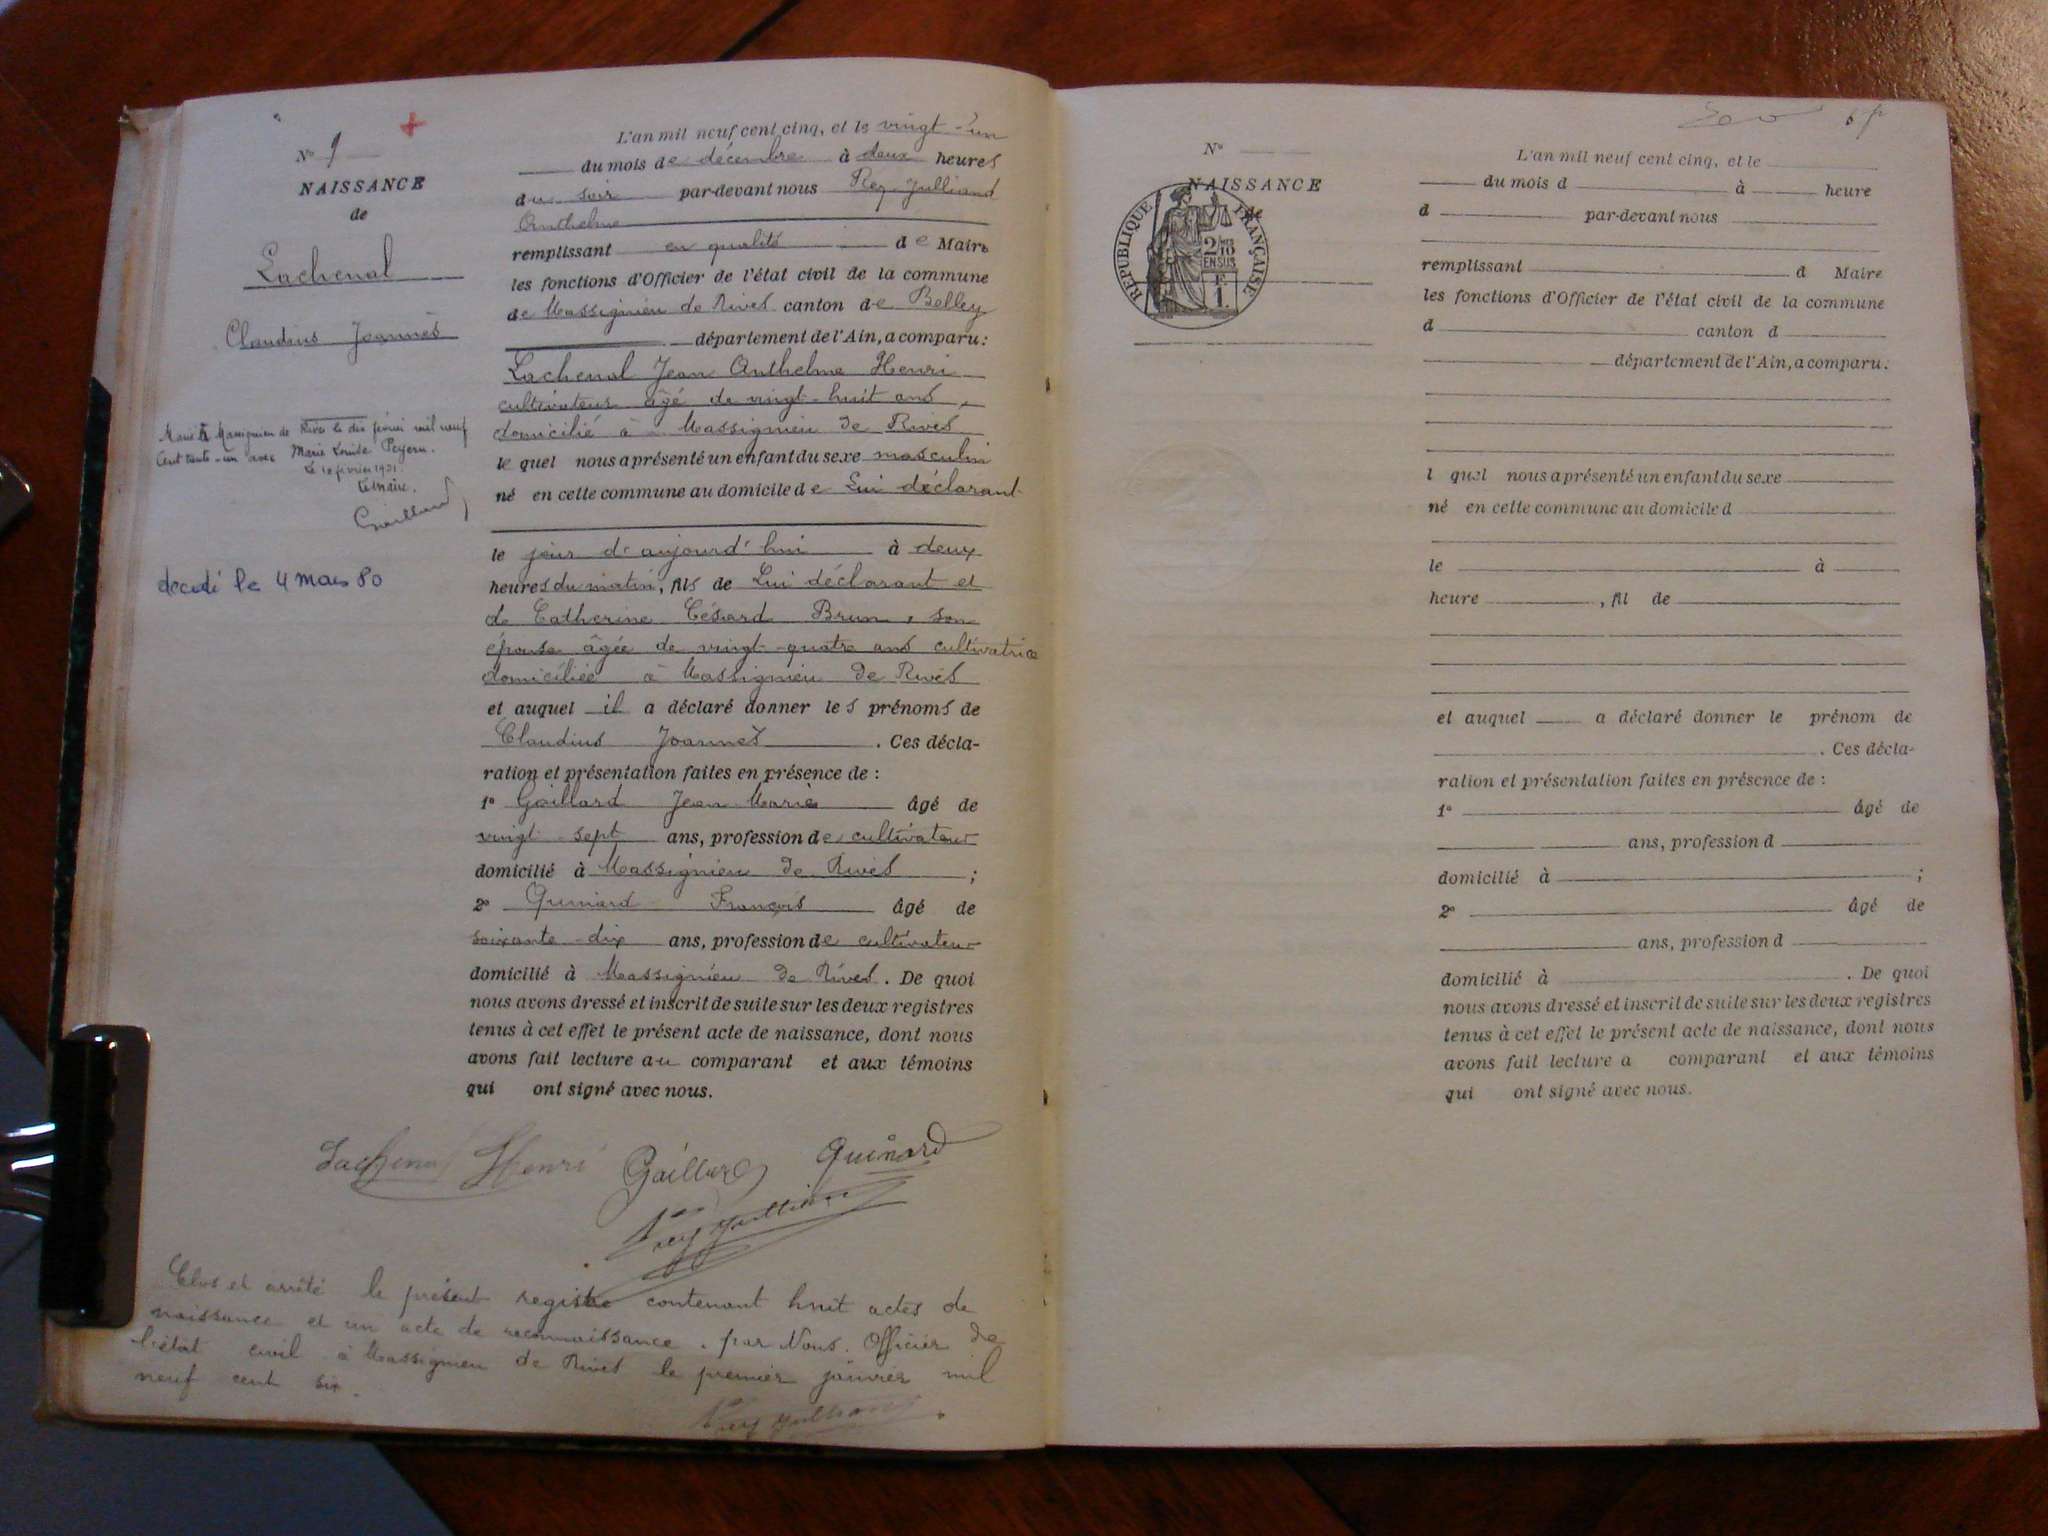 N° 9
NAISSANCE
de
Lachenal
Claudius Joannès
Marié à Massignieu de Rives le dix février mil neuf
cent trente-un avec Marie Louise Peysson.
Le 10 février 1931.
Le Maire.
Gaillard
décédé le 4 mars 80
L'an mil neuf cent cinq, et le vingt-un
du mois de décembre à deux heures
du soir par-devant nous Rey Julliand
Anthelme
remplissant en qualité de Maire
les fonctions d'Officier de l'état civil de la commune
de Massignieu de Rives canton de Belley
département de l'Ain, a comparu:
Lachenal Jean Anthelme Henri
cultivateur âgé de vingt-huit ans,
domicilié à Massignieu de Rives
le quel nous a présenté un enfant du sexe masculin
né en cette commune au domicile de Lui déclarant
le jour d'aujourd'hui à deux
heures du matin, fils de Lui déclarant et
de Catherine Césard Brun, son
épouse âgée de vingt-quatre ans cultivatrice
domiciliée à Massignieu de Rives
et auquel il a déclaré donner les prénoms de
Claudius Joannes. Ces décla-
ration et présentation faites en présence de :
1° Gaillard Jean Marie âgé de
vingt-sept ans, profession de cultivateur
domicilié à Massignieu de Rives ;
2° Guinard François âgé de
soixante-dix ans, profession de cultivateur
domicilié à Massignieu de Rives. De quoi
nous avons dressé et inscrit de suite sur les deux registres
tenus à cet effet le présent acte de naissance, dont nous
avons fait lecture au comparant et aux témoins
qui ont signé avec nous.
Lachenal Henri Gaillard Guinard
Rey Julliand
Clos et arrêté le présent registre contenant huit actes de
naissance et un acte de reconnaissance. par Nous. Officier de
l'état civil à Massignieu de Rives le premier janvier mil
neuf cent six.
Rey Julliand
N°
NAISSANCE
de
RÉPUBLIQUE FRANÇAISE
2/10
EN SUS
1 F.
L'an mil neuf cent cinq, et le
du mois d à heure
d par-devant nous
remplissant d Maire
les fonctions d'Officier de l'état civil de la commune
d canton d
département de l'Ain, a comparu:
l quel nous a présenté un enfant du sexe
né en cette commune au domicile d
le à
heure , fil de
et auquel a déclaré donner le prénom de
. Ces décla-
ration et présentation faites en présence de :
1° âgé de
ans, profession d
domicilié à ;
2° âgé de
ans, profession d
domicilié à . De quoi
nous avons dressé et inscrit de suite sur les deux registres
tenus à cet effet le présent acte de naissance, dont nous
avons fait lecture a comparant et aux témoins
qui ont signé avec nous.